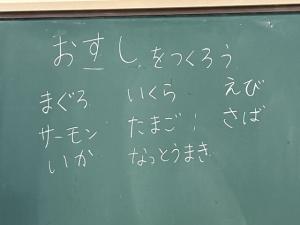 おすしをつくろう
まぐろ いくら えび
サーモン たまご! さば
いか なっとうまき